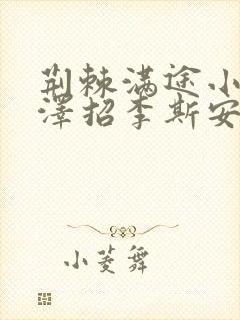 荆棘满途小
泽招李斯安
小菱舞